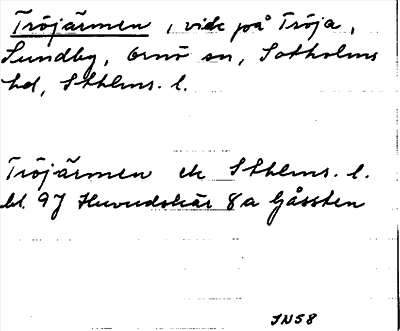 Tröjärmen, vide på Tröja,
Sundby, Ornö sn, Sotholms
hd, Sthlms. l.
Tröjärmen ek Sthlms. l.
bl. 97 Huvudskär 8a Gåssten
JNS8